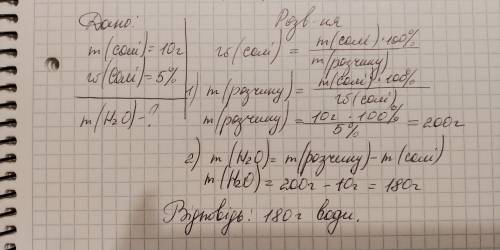 Дано:
m(солі)=10г
ω(солі)=5%
m(H₂O)-?
Розв-ня
ω(солі) = m(солі)·100% / m(розчину)
1) m(розчину) = m(солі)·100% / ω(солі)
m(розчину) = 10г·100% / 5% = 200г
2) m(H₂O) = m(розчину) - m(солі)
m(H₂O) = 200г - 10г = 180г
Відповідь: 180г води.